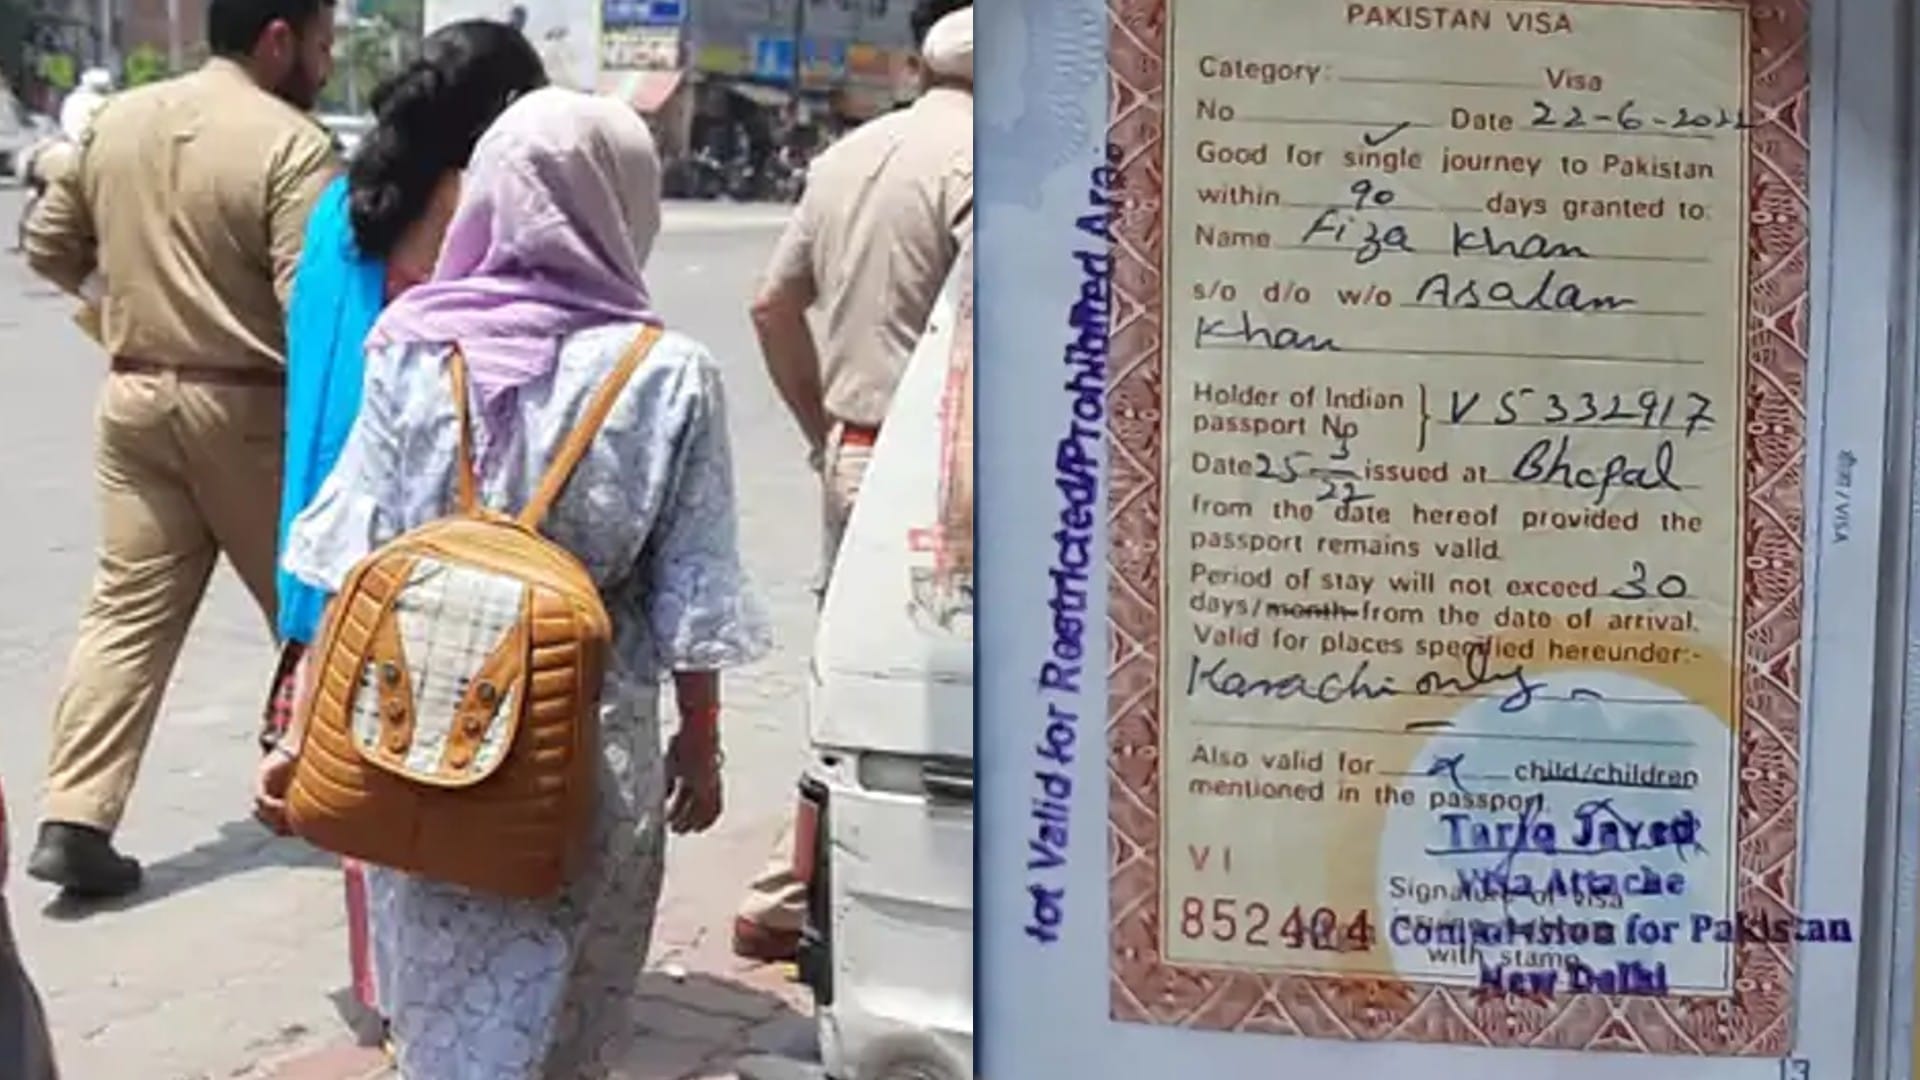 PAKISTAN VISA
Category: Visa
No Date 22-6-2022
Good for single journey to Pakistan
within 90 days granted to:
Name Fiza Khan
s/o d/o w/o Asalam
Khan
Holder of Indian
passport No
VS332917
Date 25 3/22 issued at Bhopal
from the date hereof provided the
passport remains valid.
Period of stay will not exceed 30
days/month from the date of arrival.
Valid for places specified hereunder:-
Karachi only
Also valid for child/children
mentioned in the passport.
Tariq Javed
Visa Attache
Signature of Visa
VI
852404
Commission for Pakistan
with stamp
New Delhi
Not Valid for Restricted/Prohibited Area.
/VISA
13